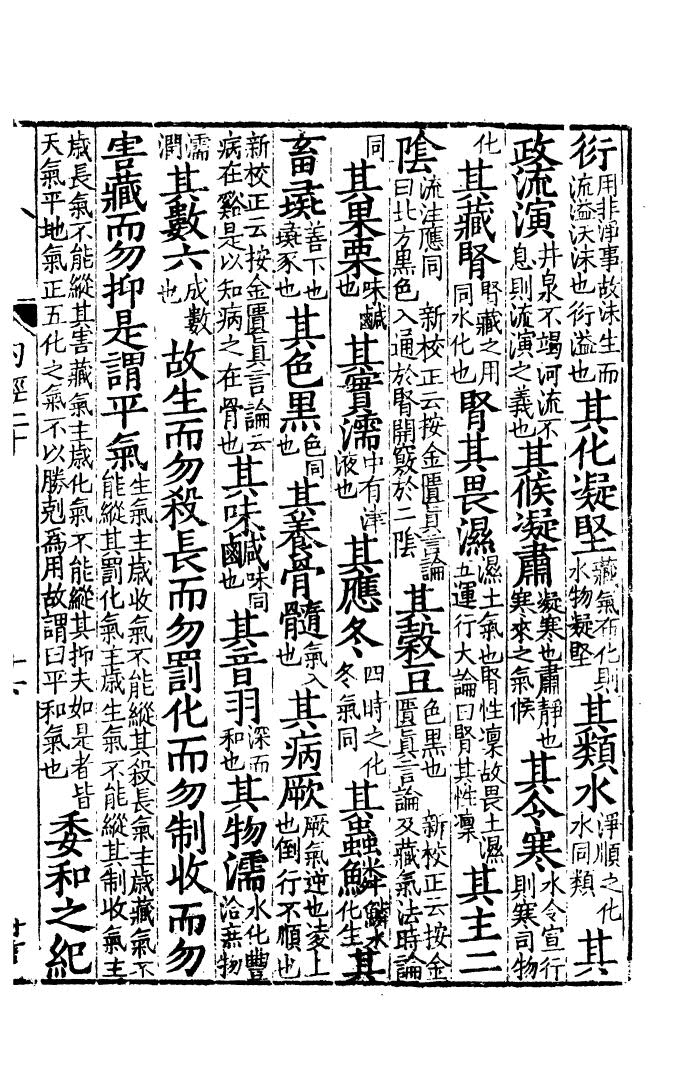 衍用非淨事故沫生而流溢沃沫也衍溢也其化凝堅藏氣布化則水物凝堅其類水淨順之化水同類其
政流演井泉不竭河流不息則流演之義也其候凝肅凝寒也肅靜也寒來之氣候其令寒水令宣行則寒司物
化其藏腎腎藏之用同水化也腎其畏濕濕土氣也腎性凜故畏土濕五運行大論曰腎其性凜其主二
陰流注應同 新校正云按金匱眞言論曰北方黑色入通於腎開竅於二陰其穀豆色黑也 新校正云按金匱眞言論及藏氣法時論
同其果栗味鹹也其實濡中有津液也其應冬四時之化冬氣同其蟲鱗鱗水化生其
畜彘善下也彘豕也其色黑色同也其養骨髓氣入也其病厥厥氣逆也凌上也倒行不順也
新校正云按金匱眞言論云病在谿是以知病之在骨也其味鹹味同也其音羽深而和也其物濡水化豐洽庶物
濡潤其數六成數也故生而勿殺長而勿罰化而勿制收而勿
害藏而勿抑是謂平氣生氣主歲收氣不能縱其殺長氣主歲藏氣不能縱其罰化氣主歲生氣不能縱其制收氣主
歲長氣不能縱其害藏氣主歲化氣不能縱其抑夫如是者皆天氣平地氣正五化之氣不以勝剋爲用故謂曰平和氣也委和之紀